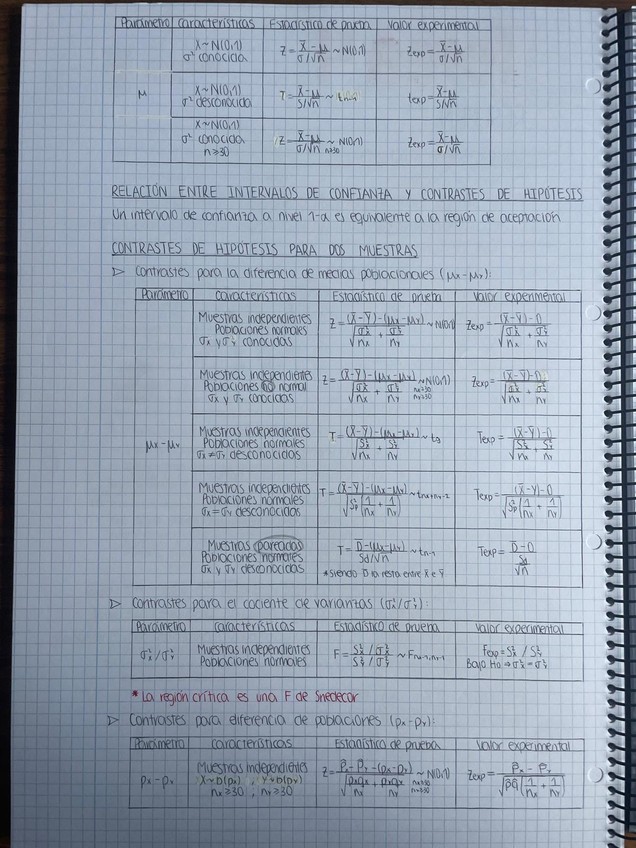 Parámetro características Estadístico de prueba Valor experimental
μ
X~N(0,1)
σ² conocida
Z = (X̄-μ)/(σ/√n) ~ N(0,1)
Zexp = (X̄-μ)/(σ/√n)
X~N(0,1)
σ² desconocida
T = (X̄-μ)/(S/√n) ~ tn-1
texp = (X̄-μ)/(S/√n)
X~N(0,1)
σ² conocida
n≥30
Z = (X̄-μ)/(σ/√n) ~ N(0,1) n≥30
Zexp = (X̄-μ)/(σ/√n)
RELACIÓN ENTRE INTERVALOS DE CONFIANZA Y CONTRASTES DE HIPÓTESIS
Un intervalo de confianza a nivel 1-α es equivalente a la región de aceptación
CONTRASTES DE HIPÓTESIS PARA DOS MUESTRAS
▷ Contrastes para la diferencia de medias poblacionales (μx-μY):
Parámetro características Estadístico de prueba Valor experimental
μx-μY
Muestras independientes
Poblaciones normales
σx y σY conocidas
Z = ((X̄-Ȳ)-(μx-μY))/√(σ²x/nx + σ²Y/nY) ~ N(0,1)
Zexp = ((X̄-Ȳ)-0)/√(σ²x/nx + σ²Y/nY)
Muestras independientes
Poblaciones no normal
σx y σY conocidas
Z = ((X̄-Ȳ)-(μx-μY))/√(σ²x/nx + σ²Y/nY) ~ N(0,1) nx≥30 nY≥30
Zexp = ((X̄-Ȳ)-0)/√(σ²x/nx + σ²Y/nY)
Muestras independientes
Poblaciones normales
σx≠σY desconocidas
T = ((X̄-Ȳ)-(μx-μY))/√(S²x/nx + S²Y/nY)
Texp = ((X̄-Ȳ)-0)/√(S²x/nx + S²Y/nY)
Muestras independientes
Poblaciones normales
σx=σY desconocidas
T = ((X̄-Ȳ)-(μx-μY))/√(S²p(1/nx + 1/nY)) ~ tnx+nY-2
Texp = ((X̄-Ȳ)-0)/√(S²p(1/nx + 1/nY))
Muestras pareadas
Poblaciones normales
σx y σY desconocidas
T = (D̄-(μx-μY))/(Sd/√n) ~ tn-1
*siendo D la resta entre X̄ e Ȳ
Texp = (D̄-0)/(Sd/√n)
▷ Contrastes para el cociente de varianzas (σ²x/σ²Y):
Parámetro características Estadístico de prueba Valor experimental
σ²x/σ²Y
Muestras independientes
Poblaciones normales
F = (S²x/σ²x)/(S²Y/σ²Y)
Fexp = S²x/S²Y
Bajo Ho → σ²x = σ²Y
* La región crítica es una F de Snedecor
▷ Contrastes para diferencia de poblaciones (px-pY):
Parámetro características Estadístico de prueba Valor experimental
px-pY
Muestras independientes
X~b(px), Y~b(pY)
nx≥30, nY≥30
Z = (p̂x-p̂Y-(px-pY))/√(pxqx/nx + pYqY/nY) ~ N(0,1) nx≥30 nY≥30
Zexp = (p̂x-p̂Y)/√(p̂q̂(1/nx + 1/nY))